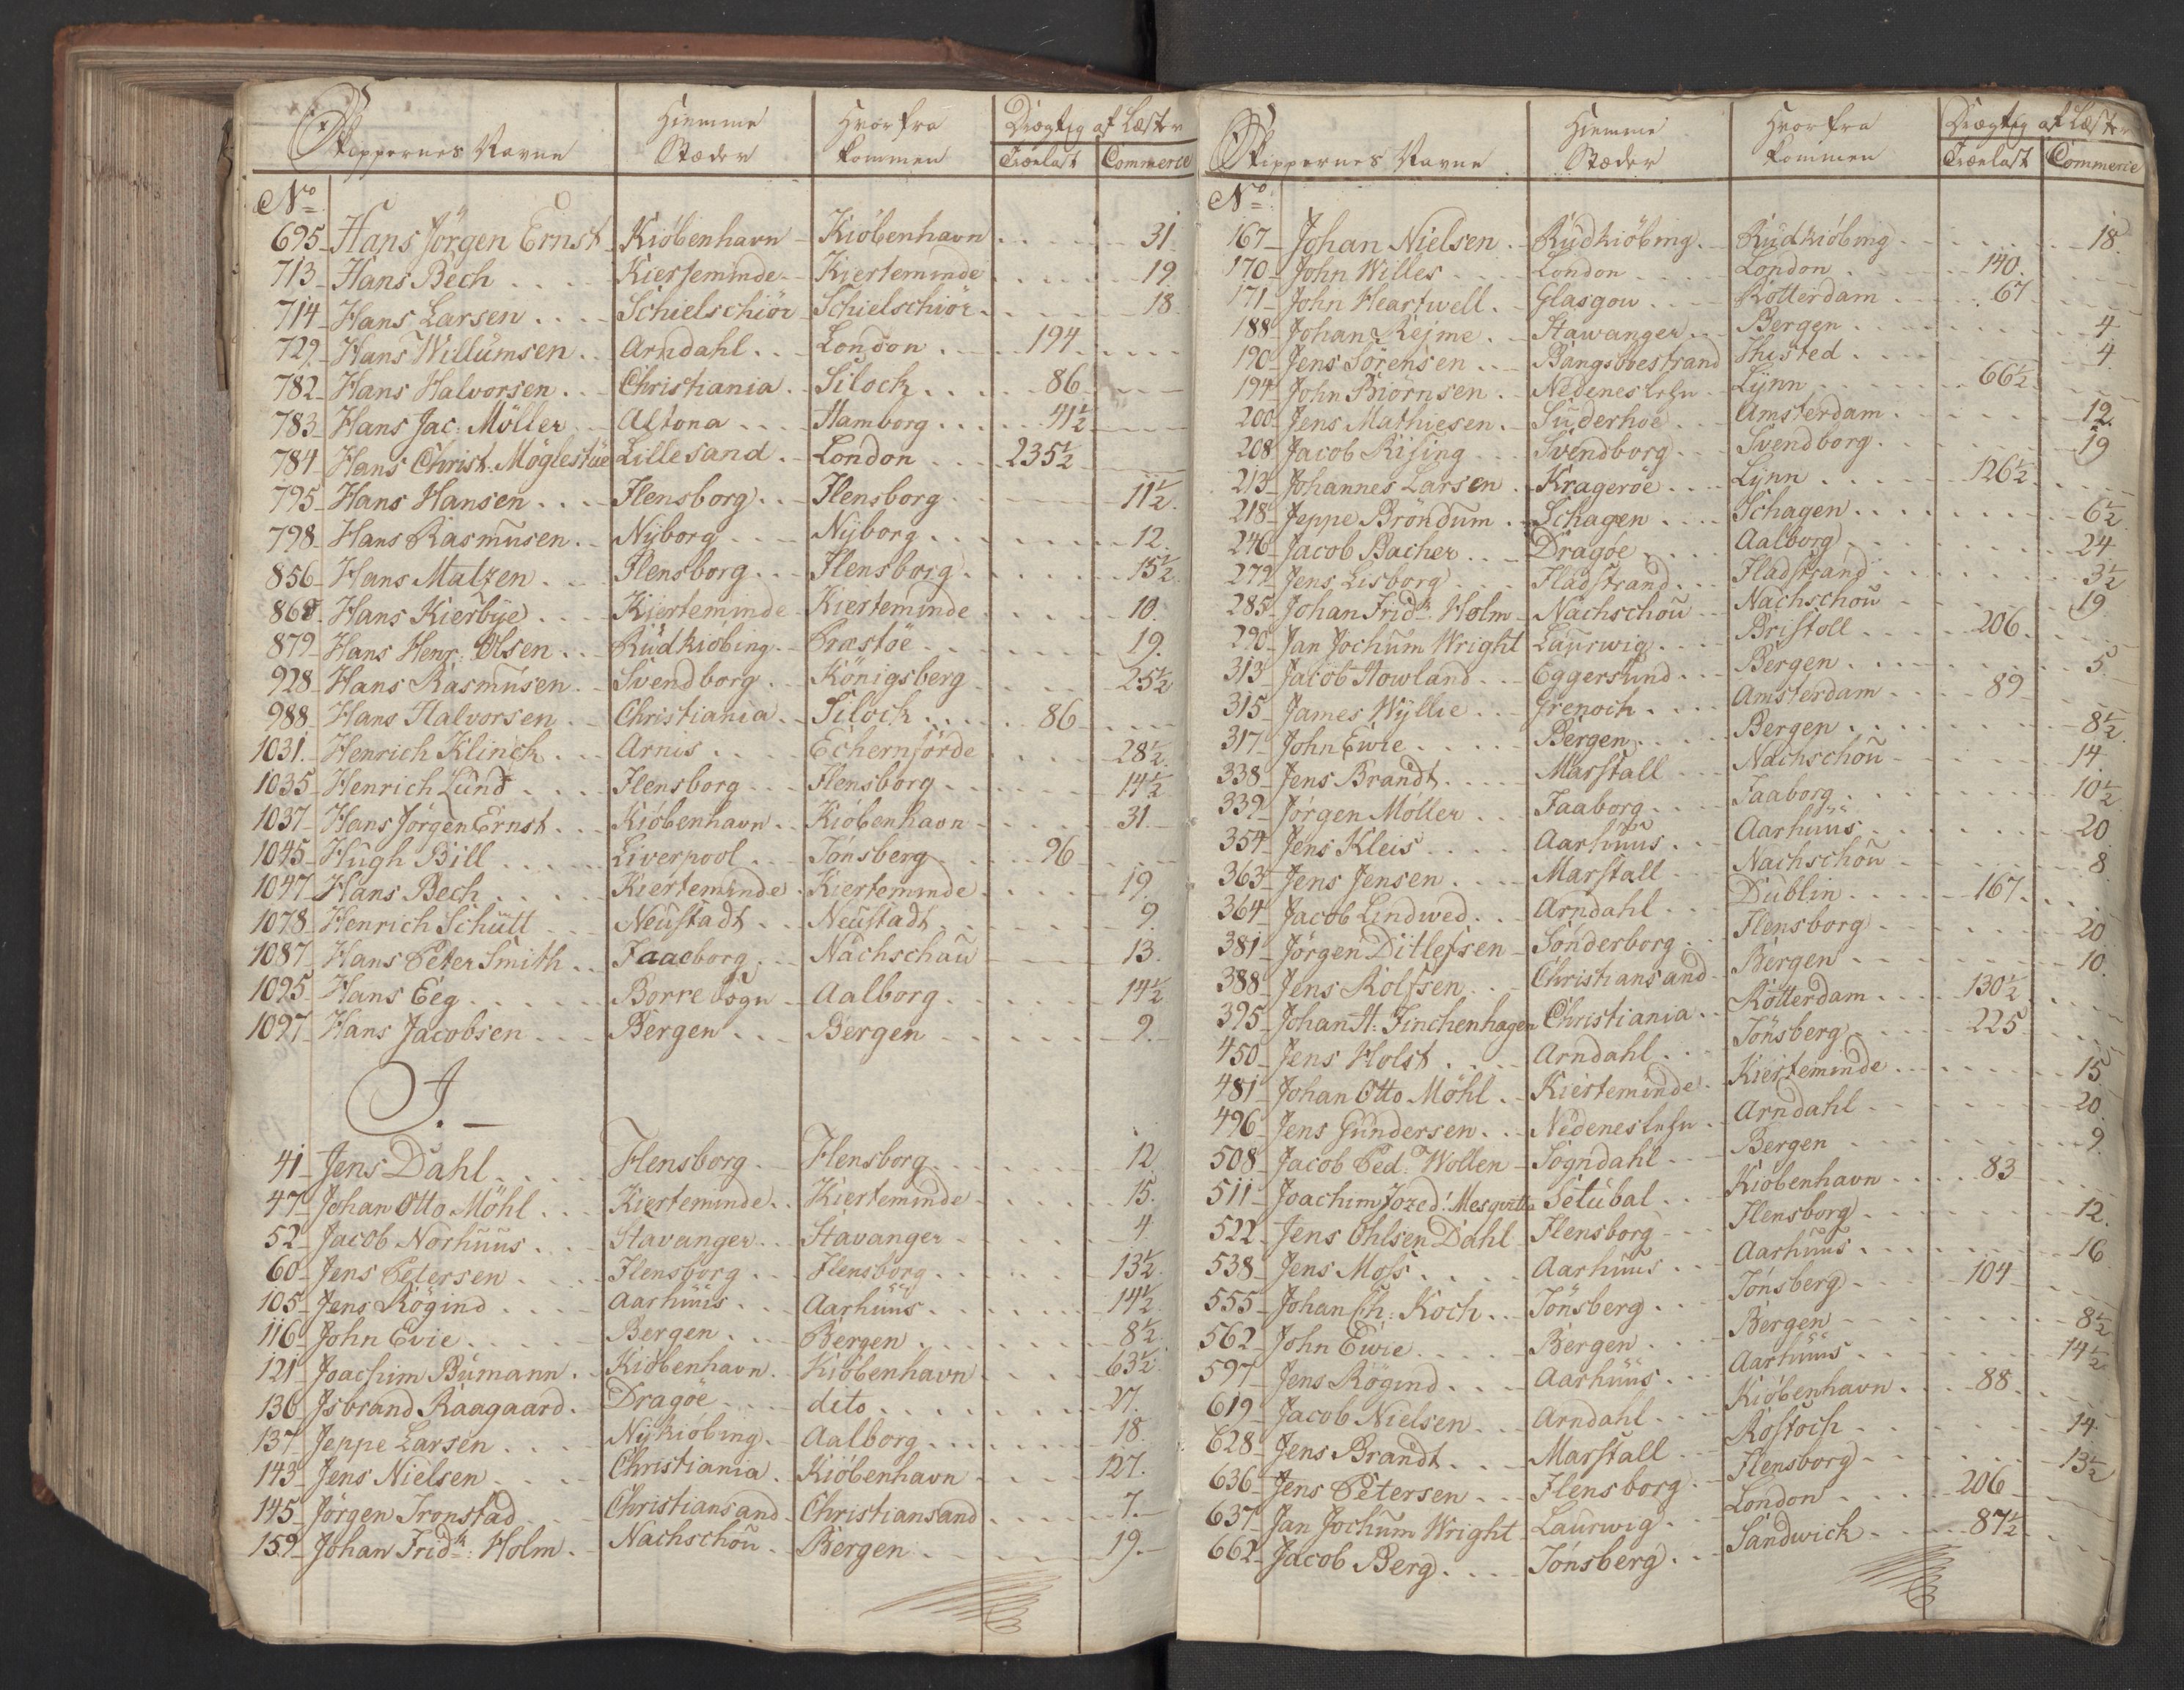 Skippernes Navne | Hiemme Stæder | Hvor fra kommen | Drægtig af Læster Trælast | Commerce
No
695 Hans Jörgen Ernst Kiöbenhavn Kiöbenhavn 31
713 Hans Bech Kierteminde Kierteminde 19
714 Hans Larsen Schielschiör Schielschiör 18
729 Hans Willumsen Arndahl London 194
782 Hans Halvorsen Christiania Silock 86
783 Hans Jac: Möller Altona Hamborg 41½
784 Hans Christ. Möglestüe Lillesand London 235½
795 Hans Hansen Flensborg Flensborg 11½
798 Hans Rasmusen Nyborg Nyborg 12
856 Hans Matzen Flensborg Flensborg 15½
868 Hans Kierbye Kierteminde Kierteminde 10
879 Hans Henr: Olsen Rudkiöbing Præstöe 19
928 Hans Rasmusen Svendborg Königsberg 25½
988 Hans Halvorsen Christiania Silock 86
1031 Henrich Klinck Arnis Echernförde 28½
1035 Henrich Lund Flensborg Flensborg 14½
1037 Hans Jörgen Ernst Kiöbenhavn Kiöbenhavn 31
1045 Hugh Bill Liverpool Tönsberg 96
1047 Hans Bech Kierteminde Kierteminde 19
1078 Henrich Schütt Neustadt Neustadt 9
1087 Hans Peter Smith Faaeborg Nachschau 13
1095 Hans Eeg Borre Sogn Aalborg 14½
1097 Hans Jacobsen Bergen Bergen 9
J.
41 Jens Dahl Flensborg Flensborg 12
47 Johan Otto Möhl Kierteminde Kierteminde 15
52 Jacob Norhuus Stavanger Stavanger 4
60 Jens Petersen Flensborg Flensborg 13½
105 Jens Rögind Aarhuus Aarhuus 14½
116 John Evie Bergen Bergen 8½
121 Joachim Bumann Kiöbenhavn Kiöbenhavn 63½
130 Isbrand Raagaard Dragöe dito 27
137 Jeppe Larsen Nykiöbing Aalborg 18
143 Jens Nielsen Christiania Kiöbenhavn 127
145 Jörgen Tronstad Christiansand Christiansand 7
159 Johan Fridk: Holm Nachschou Bergen 19
Skippernes Navne | Hiemme Stæder | Hvor fra kommen | Drægtig af Læster Trælast | Commerce
No
167 Johan Nielsen Rudkiöbing Rudkiöbing 18
170 John Willes London London 140
171 John Heartwell Glasgow Rotterdam 67
188 Johan Rejme Stawanger Bergen 4
190 Jens Sörensen Bangsboestrand Thisted 4
194 John Biörnsen Nedenes Lehn Lynn 66½
200 Jens Mathiesen Süderhoe Amsterdam 12
208 Jacob Rising Svendborg Svendborg 19
213 Johannes Larsen Krageröe Lynn 126½
218 Jeppe Bröndum Schagen Schagen 6½
246 Jacob Bacher Dragöe Aalborg 24
279 Jens Lisborg Fladstrand Fladstrand 3½
285 Johan Fridk: Holm Nachschou Nachschou 19
290 Jan Jochum Wright Laurwig Bristoll 206
313 Jacob Howland Eggersund Bergen 5
315 James Wyllie Grenoch Amsterdam 89
317 John Ewie Bergen Bergen 8½
338 Jens Brandt Marstall Nachschou 14
339 Jörgen Moller Faaborg Faaborg 10½
354 Jens Kleis Aarhuus Aarhuus 20
363 Jens Jensen Marstall Nachschou 8
364 Jacob Lindwed Arndahl Dublin 167
381 Jörgen Ditlefsen Sonderborg Flensborg 20
388 Jens Rolfsen Christiansand Bergen 10
395 Johan H: Finchenhagen Christiania Rotterdam 130½
450 Jens Holst Arndahl Tönsberg 225
481 Johan Otto Möhl Kierteminde Kierteminde 15
496 Jens Gundersen Nedenes Lehn Arndahl 20
508 Jacob Ped: Wollen Sogndahl Bergen 9
511 Joachim Jozed: Mesqvitta Setubal Kiöbenhavn 83
522 Jens Ohlsen Dahl Flensborg Flensborg 12
538 Jens Moss Aarhuus Aarhuus 16
555 Johan Ch: Koch Tönsberg Tönsberg 104
562 John Ewie Bergen Bergen 8½
597 Jens Rögind Aarhuus Aarhuus 14½
619 Jacob Nielsen Arndahl Kiöbenhavn 88
628 Jens Brandt Marstall Rostoch 14
636 Jens Petersen Flensborg Flensborg 13½
637 Jan Jochum Wright Laurwig London 206
662 Jacob Berg Tönsberg Sandwich 87½